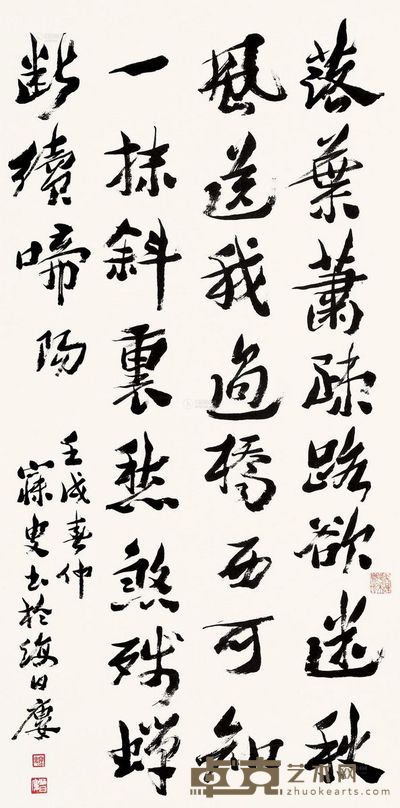 落葉蕭疎路欲迷秋
風送我過橋西可知
一抹斜裏愁煞殘蟬
斷續啼 陽
壬戌春仲
寐叟書於海日廔
卓克艺术网
www.zhuokearts.com